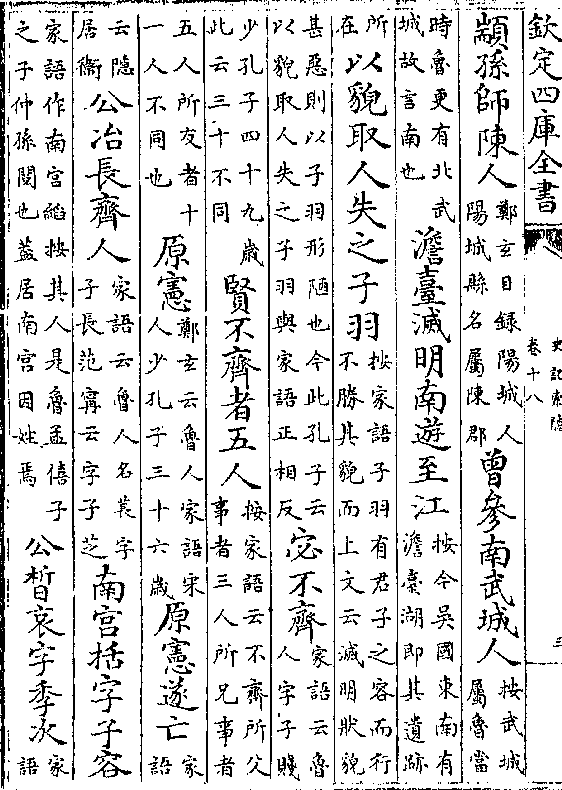 欽定四庫全書
史記索隱
卷十八
三
顓孫師陳人
鄭玄目録陽城人
陽城縣名屬陳郡
曾參南武城人
按武城
屬魯當
時魯更有北武
城故言南也
澹臺滅明南遊至江
按今吳國東南有
澹臺湖即其遺跡
所
在
以貌取人失之子羽
按家語子羽有君子之容而行
不勝其貌而上文云滅明狀貌
甚惡則以子羽形陋也今此孔子云
以貌取人失之子羽與家語正相反
宓不齊
家語云魯
人字子賤
少孔子四十九歲
此云三十不同
賢不齊者五人
按家語云不齊所父
事者三人所兄事者
五人所友者十
一人不同也
原憲
鄭玄云魯人家語宋
人少孔子三十六歲
原憲遂亡
家
語
云隱
居衛
公冶長齊人
家語云魯人名萇字
子長范寗云字子芝
南宮括字子容
家語作南宮縚按其人是魯孟僖子
之子仲孫閱也蓋居南宮因姓焉
公晳哀字季次
家
語